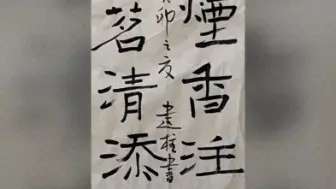 煙香注
卯之夏 書
茗清添